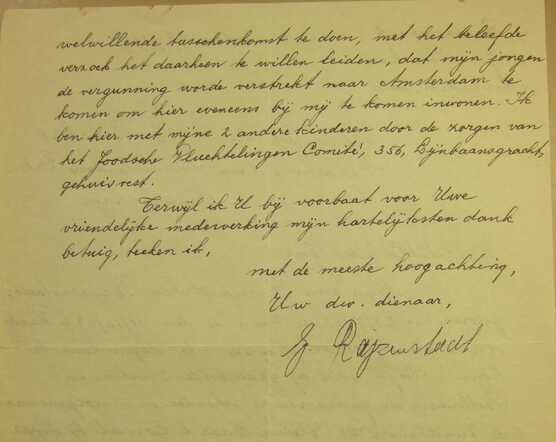 welwillende tusschenkomst te doen, met het beleefde
verzoek het daarheen te willen leiden, dat mijn jongen
de vergunning worde verstrekt naar Amsterdam te
komen om hier eveneens bij mij te komen inwonen. Ik
ben hier met mijne 2 andere kinderen door de zorgen van
het Joodsche Vluchtelingen Comité, 356, Lijnbaansgracht,
gehuisvest.
Terwijl ik U bij voorbaat voor Uwe
vriendelijke medewerking mijn hartelijksten dank
betuig, teeken ik,
met de meeste hoogachting,
Uw dw. dienaar,